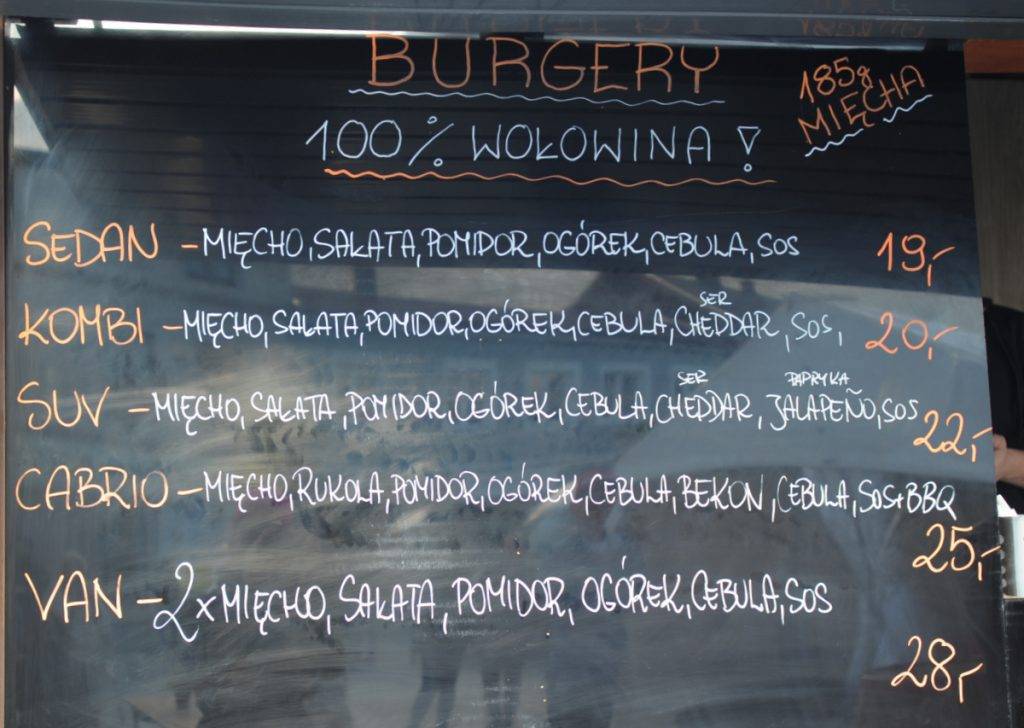 BURGERY
185g
MIĘCHA
100% WOŁOWINA!
SEDAN – MIĘCHO, SAŁATA, POMIDOR, OGÓREK, CEBULA, SOS 19,-
SER
KOMBI – MIĘCHO, SAŁATA, POMIDOR, OGÓREK, CEBULA, CHEDDAR, SOS, 20,-
SER PAPRYKA
SUV – MIĘCHO, SAŁATA, POMIDOR, OGÓREK, CEBULA, CHEDDAR, JALAPEÑO, SOS 22,-
CABRIO – MIĘCHO, RUKOLA, POMIDOR, OGÓREK, CEBULA, BEKON, CEBULA, SOS+BBQ
25,-
VAN – 2x MIĘCHO, SAŁATA, POMIDOR, OGÓREK, CEBULA, SOS
28,-